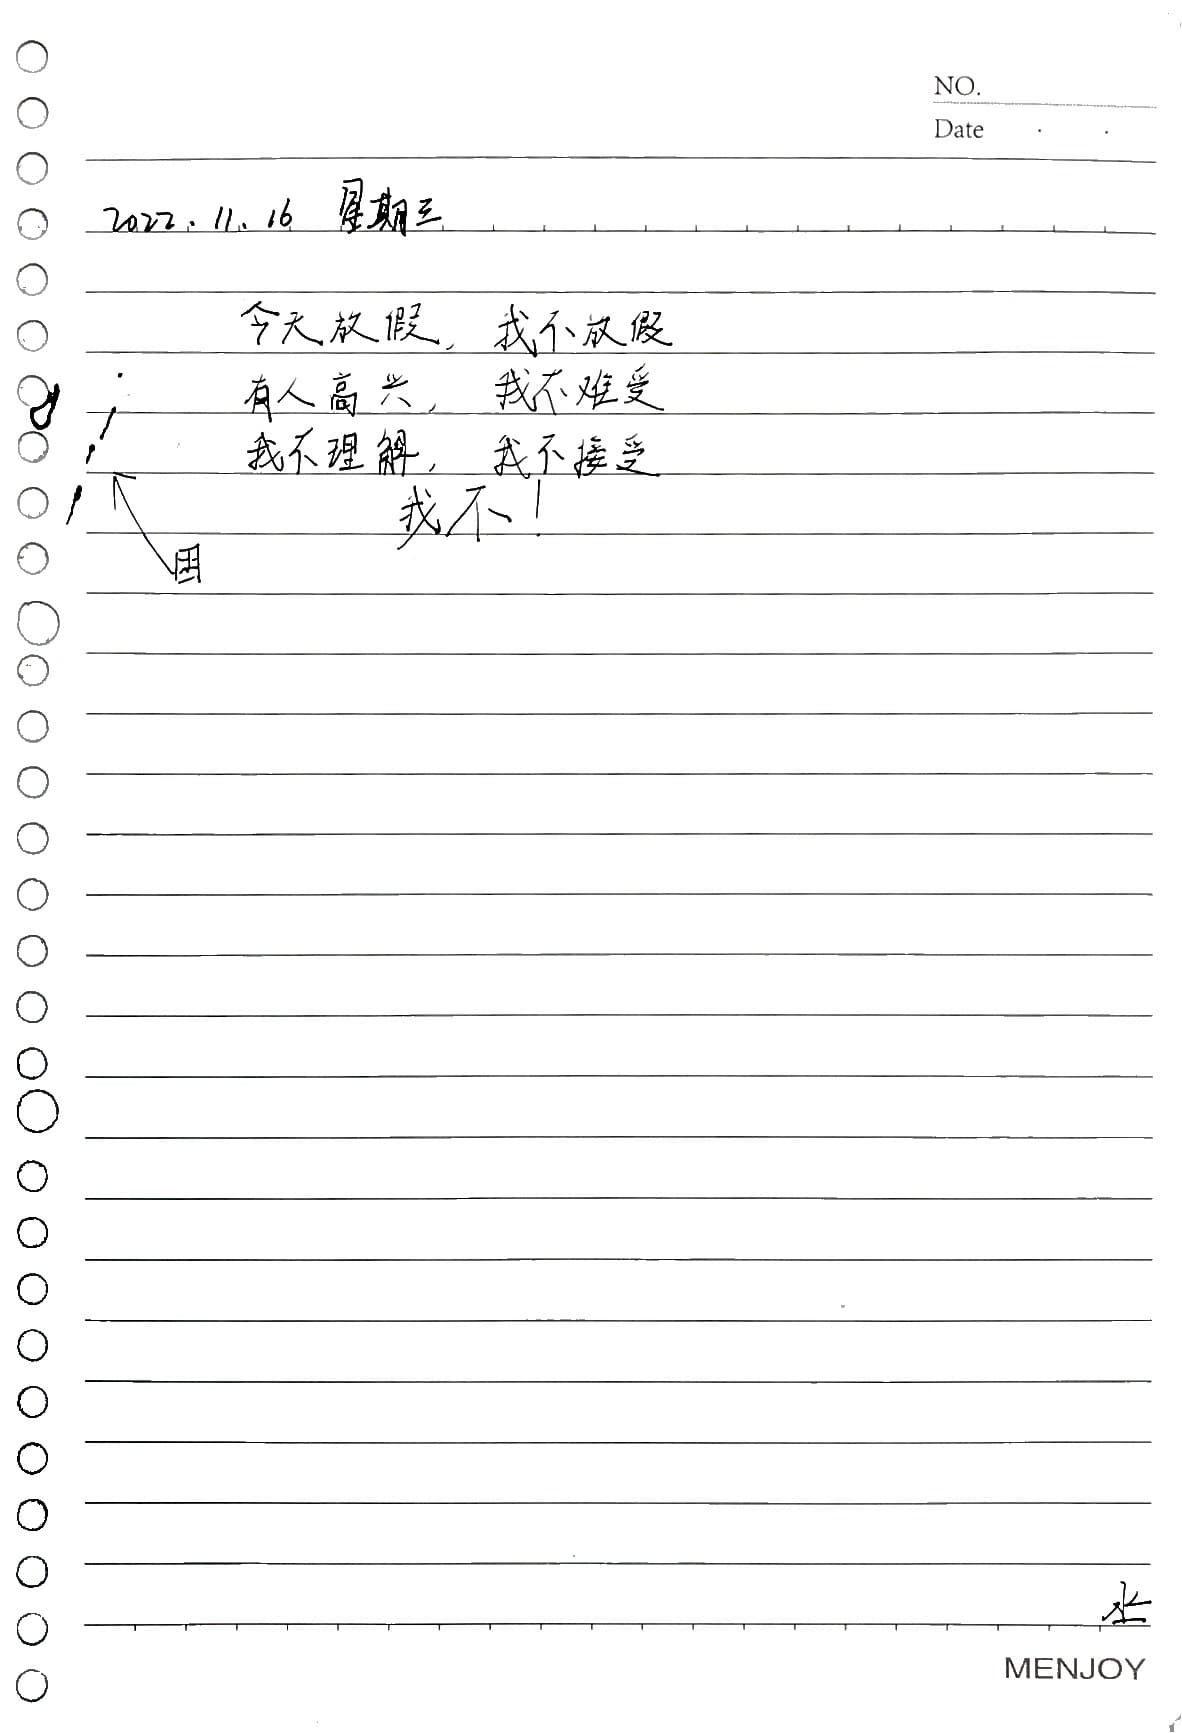 NO.
Date
2022.11.16 星期三
今天放假, 我不放假
有人高兴, 我不难受
我不理解, 我不接受
我不!
困
MENJOY